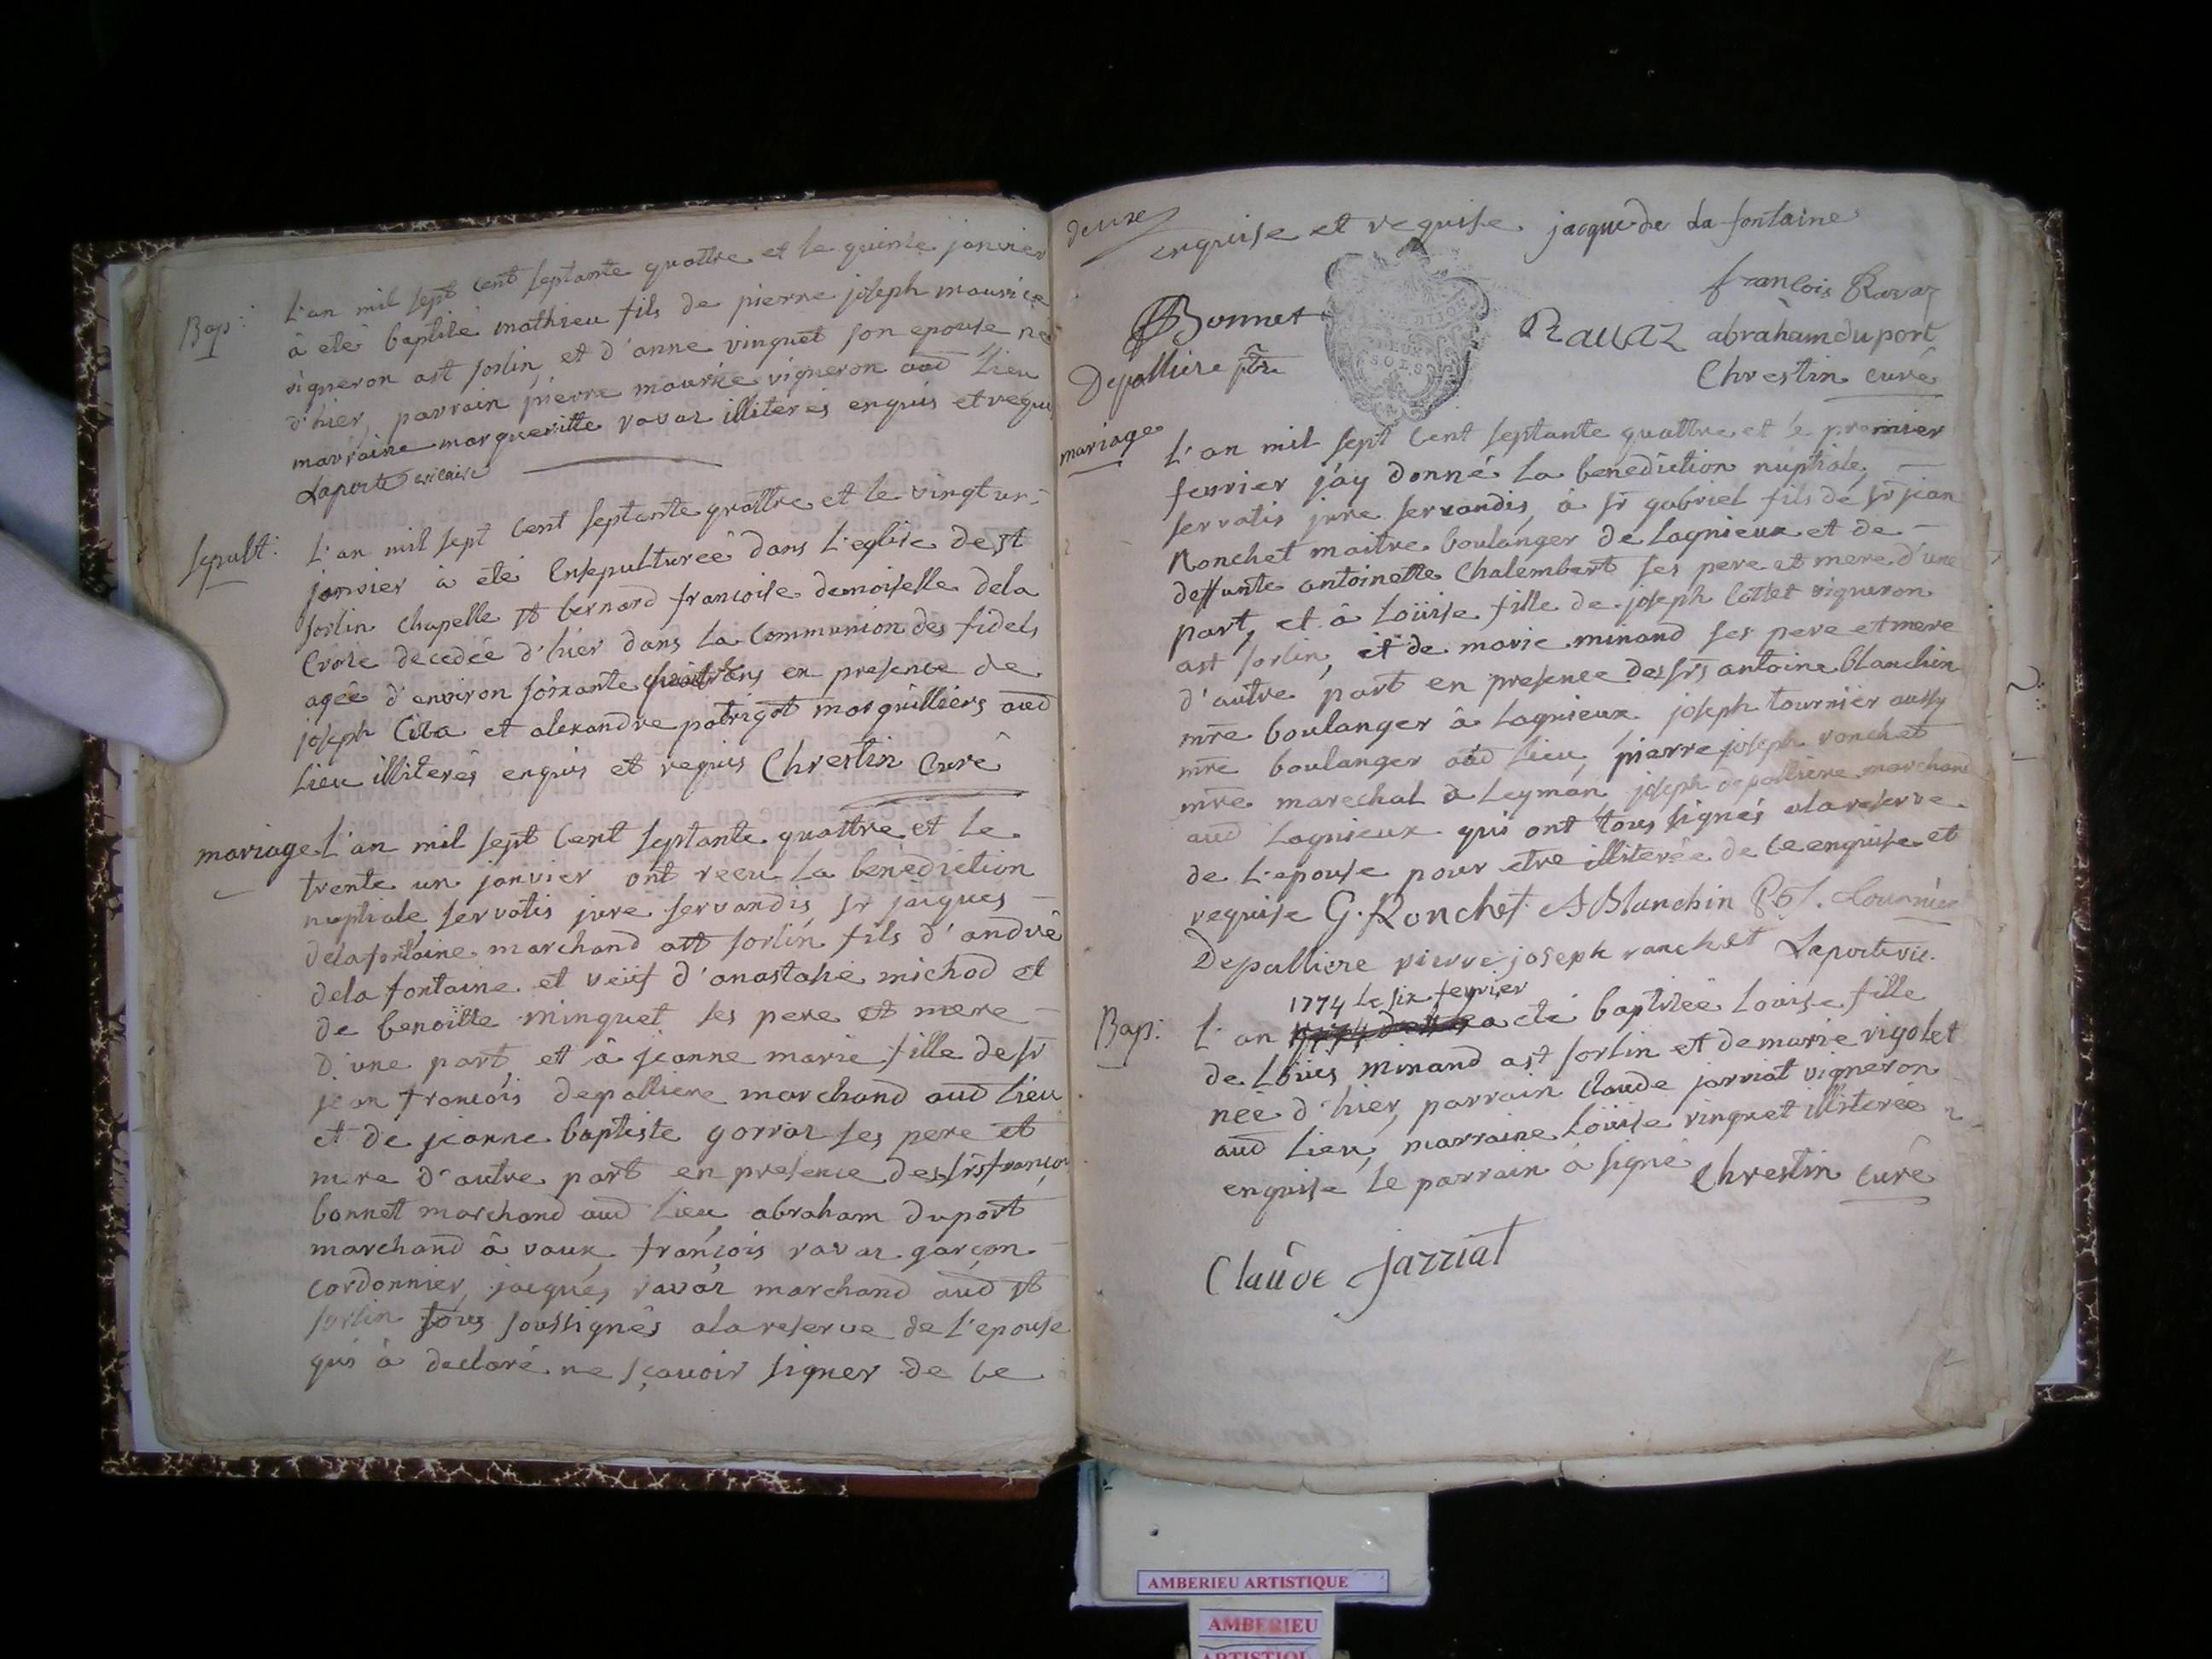 Bap:
L'an mil sept cent septante quattre et le quinze janvier
à eté baptisé mathieu fils de pierre joseph maurice
vigneron a st sorlin, et d'anne vinquet son epouse né
d'hier, parrain pierre maurice vigneron aud lieu
marraine margueritte ravaz illiterés enquis et requis
Laporte vicaire
sepult:
L'an mil sept cent septante quattre et le vingt un
janvier à eté Ensepulturéé dans L'eglise de st
sorlin chapelle st bernard francoise demoiselle dela
Croze decedéé d'hier dans la Communion des fidels
ageé d'environ soixante ans en presence de
joseph Ciba et alexandre patrigot marguilliers aud
Lieu illiterés enquis et requis Chrestin Curé
mariage
L'an mil sept cent septante quattre et le
trente un janvier ont receu La benediction
nuptiale servatis jure servandis, sr jaiques
delafontaine marchand a st sorlin fils d'andré
dela fontaine et veüf d'anastasie michod et
de benoitte minguet ses pere et mere
d'une part, et à jeanne marie fille de sr
jean francois depalliere marchand aud Lieu
et de jeanne baptiste gorraz ses pere et
mere d'autre part en presence des srs françois
bonnet marchand aud Lieu, abraham duport
marchand à vaux, françois ravaz garçon
cordonnier, jacques ravaz marchand aud st
sorlin tous soussignés ala reserve de L'epouse
qui à declaré ne sçavoir signer de ce
deux
enquise et requise. jacque de La fontaine
françois Ravaz
Bonnet
Ravaz abraham duport
Depalliere ptre
DEUX
SOLS
Chrestin curé
mariage
L'an mil sept Cent septante quattre et le premier
fevrier j'ay donné La benediction nuptiale,
servatis jure servandis, à sr gabriel fils de sr jean
Ronchet maitre boulanger de Lagnieux et de
deffunte antoinette Chalembert ses pere et mere d'une
part, et à Loüise fille de joseph Cottet vigneron
a st sorlin, et de marie minand ses pere et mere
d'autre part en presence des srs antoine blanchin
mre boulanger à Lagnieux, joseph tournier aussy
mre boulanger aud Lieu, pierre joseph ronchet
mre marechal à Leyman, joseph depalliere marchand
aud Lagnieux qui ont tous signés ala reserve
de L'epouse pour etre illiteréé de ce enquise et
requise G. Ronchet A Blanchin tournier
Depalliere pierre joseph ranchet Laporte vic.
Bap:
1774 Le six fevrier
L'an a eté baptiséé Louise fille
de Loüis minand a st sorlin et de marie vigolet
néé d'hier, parrain Claude jarriat vigneron
aud Lieu, marraine Loüise vinquet illiteréé
enquise Le parrain à signé Chrestin Curé
Claude Jarriat
AMBERIEU ARTISTIQUE
AMBERIEU
ARTISTIQU